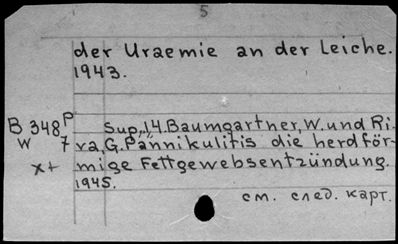 5
der Uraemie an der Leiche.
1943.
B 348 P Sup., 14. Baumgartner, W. und Ri-
W 7 va, G. Pannikulitis die herdför-
x+ mige Fettgewebsentzündung.
1945.
см. след. карт.